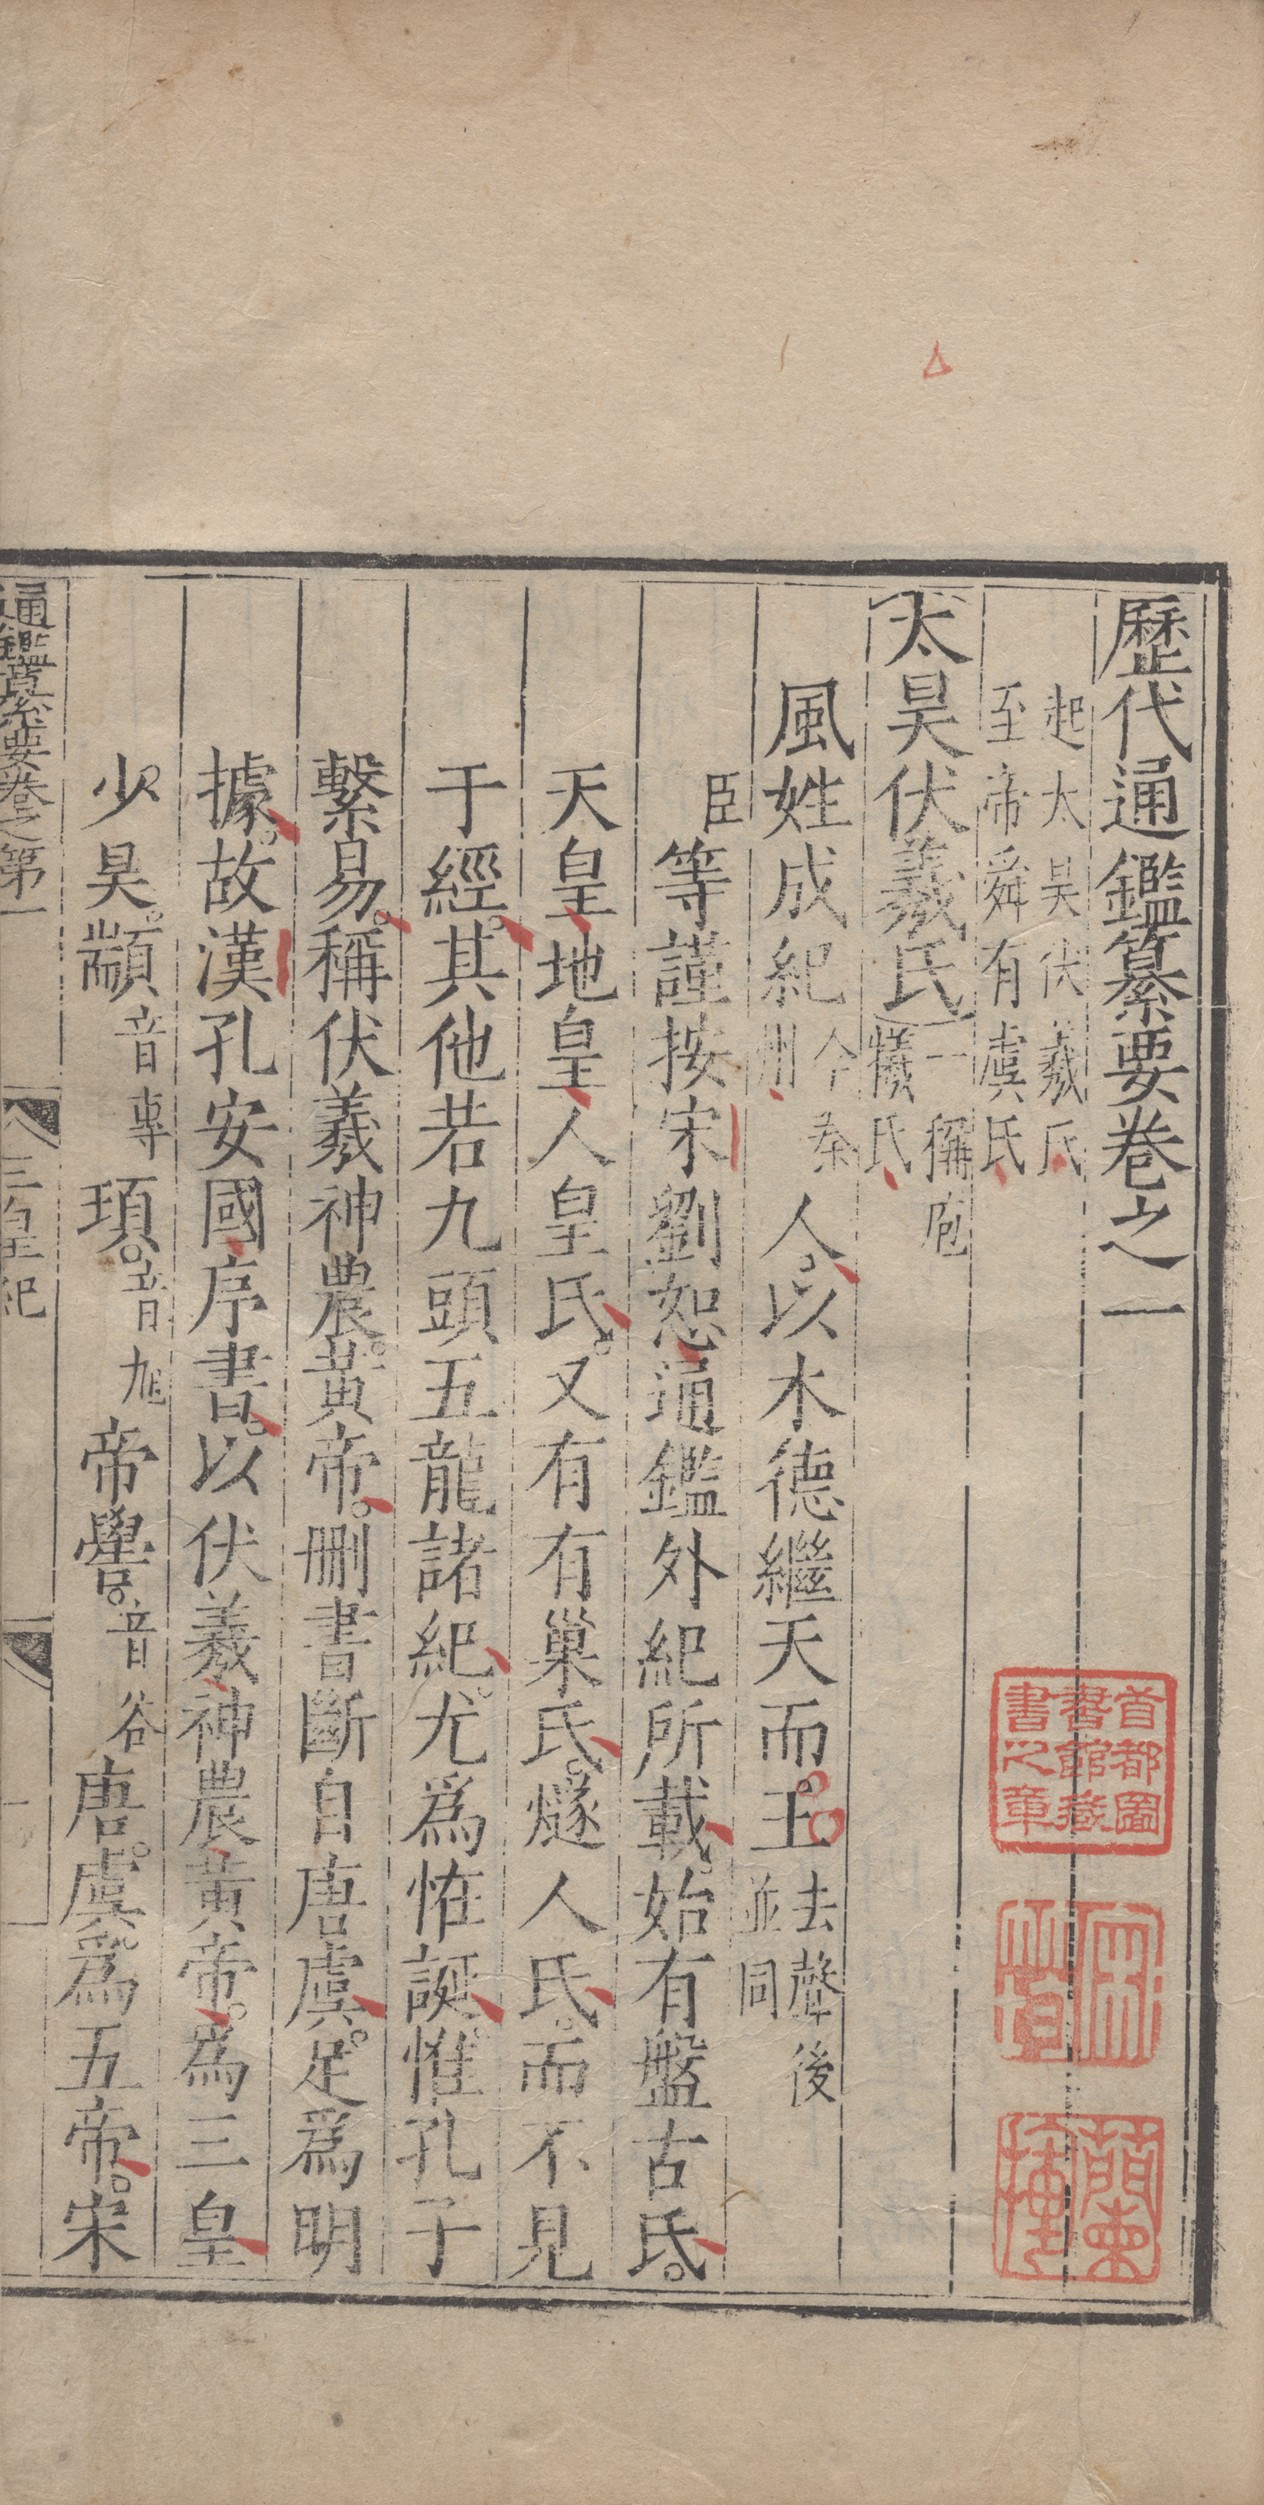 歷代通鑑纂要卷之一
起太昊伏羲氏
至帝舜有虞氏
太昊伏羲氏一稱庖犧氏
風姓成紀今秦州人以木德繼天而王去聲後並同
臣等謹按宋劉恕通鑑外紀所載始有盤古氏
天皇地皇人皇氏又有有巢氏燧人氏而不見
于經其他若九頭五龍諸紀尤爲恠誕惟孔子
繫易稱伏羲神農黃帝刪書斷自唐虞足爲明
據故漢孔安國序書以伏羲神農黃帝為三皇
少昊顓音專頊音旭帝嚳音谷唐虞爲五帝宋
通鑑纂要卷之第一
三皇紀
一
首都圖書館藏書之章